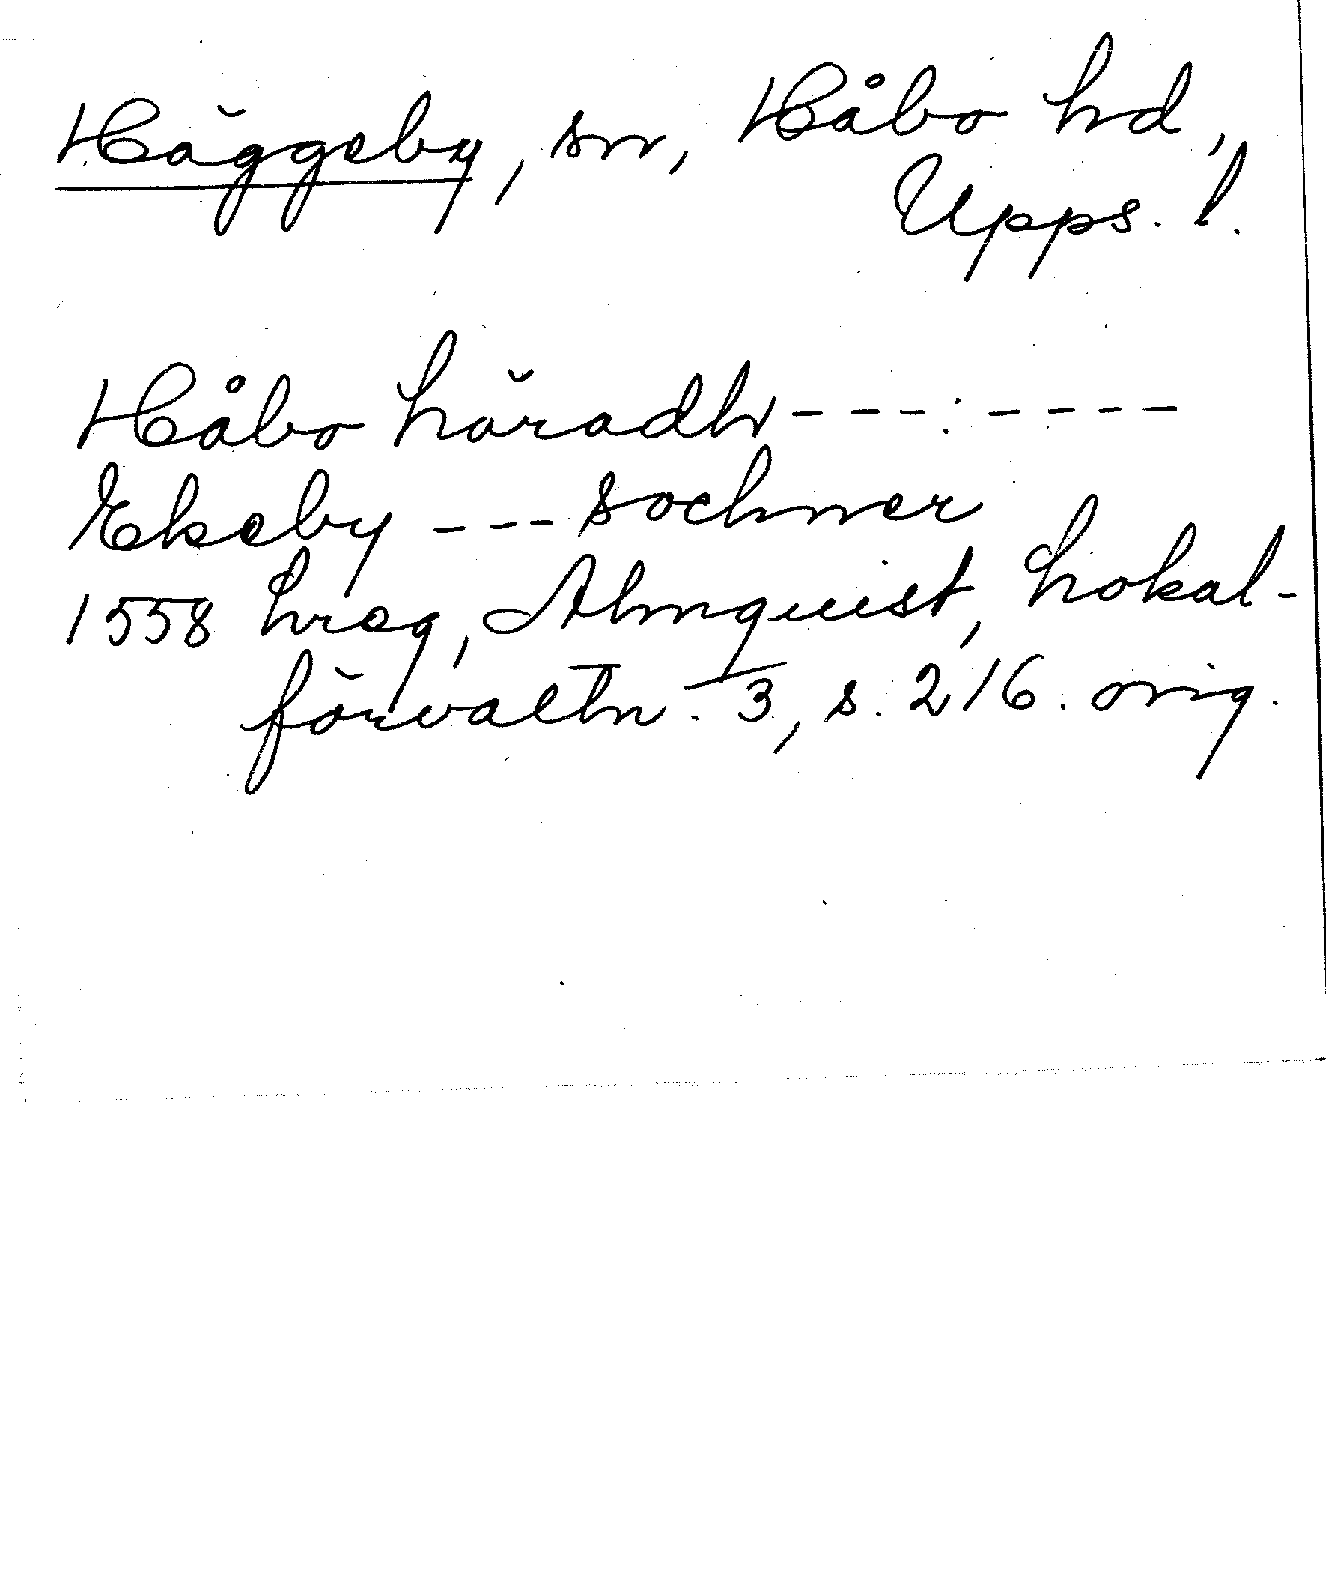 Häggeby, sn, Håbo hd,
Upps. l.
Håbo häradh --- : ----
Ekeby --- sochner
1558 hreg, Almquist, Lokal-
förvaltn. 3, s. 216. orig.